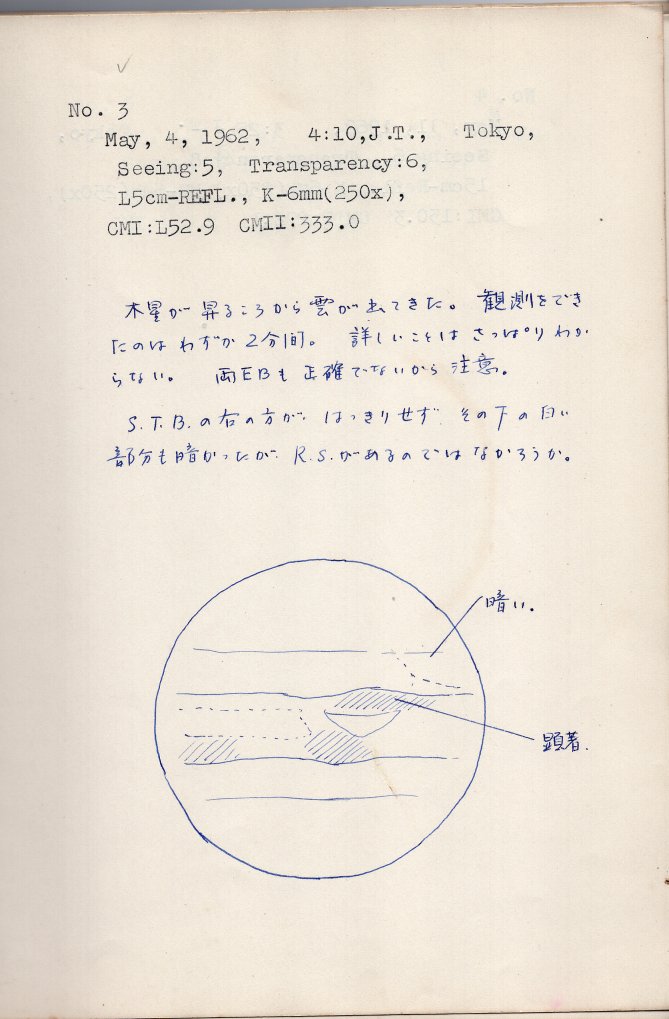 No. 3
May, 4, 1962, 4:10,J.T., Tokyo,
Seeing:5, Transparency:6,
L5cm-REFL., K-6mm(250x),
CMI:L52.9 CMII:333.0
木星が昇るころから雲が出てきた。 観測をでき
たのはわずか2分間。 詳しいことはさっぱりわか
らない。 両EBも正確でないから注意。
S.T.B.の右の方が、はっきりせず その下の白い
部分も暗かったが R.S.があるのではなかろうか。
暗い.
顕著.